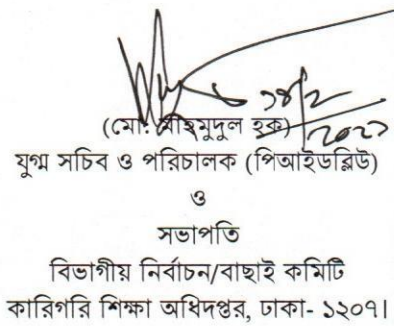 (মো: মাহমুদুল হক)
যুগ্ম সচিব ও পরিচালক (পিআইডব্লিউ)
ও
সভাপতি
বিভাগীয় নির্বাচন/বাছাই কমিটি
কারিগরি শিক্ষা অধিদপ্তর, ঢাকা- ১২০৭।